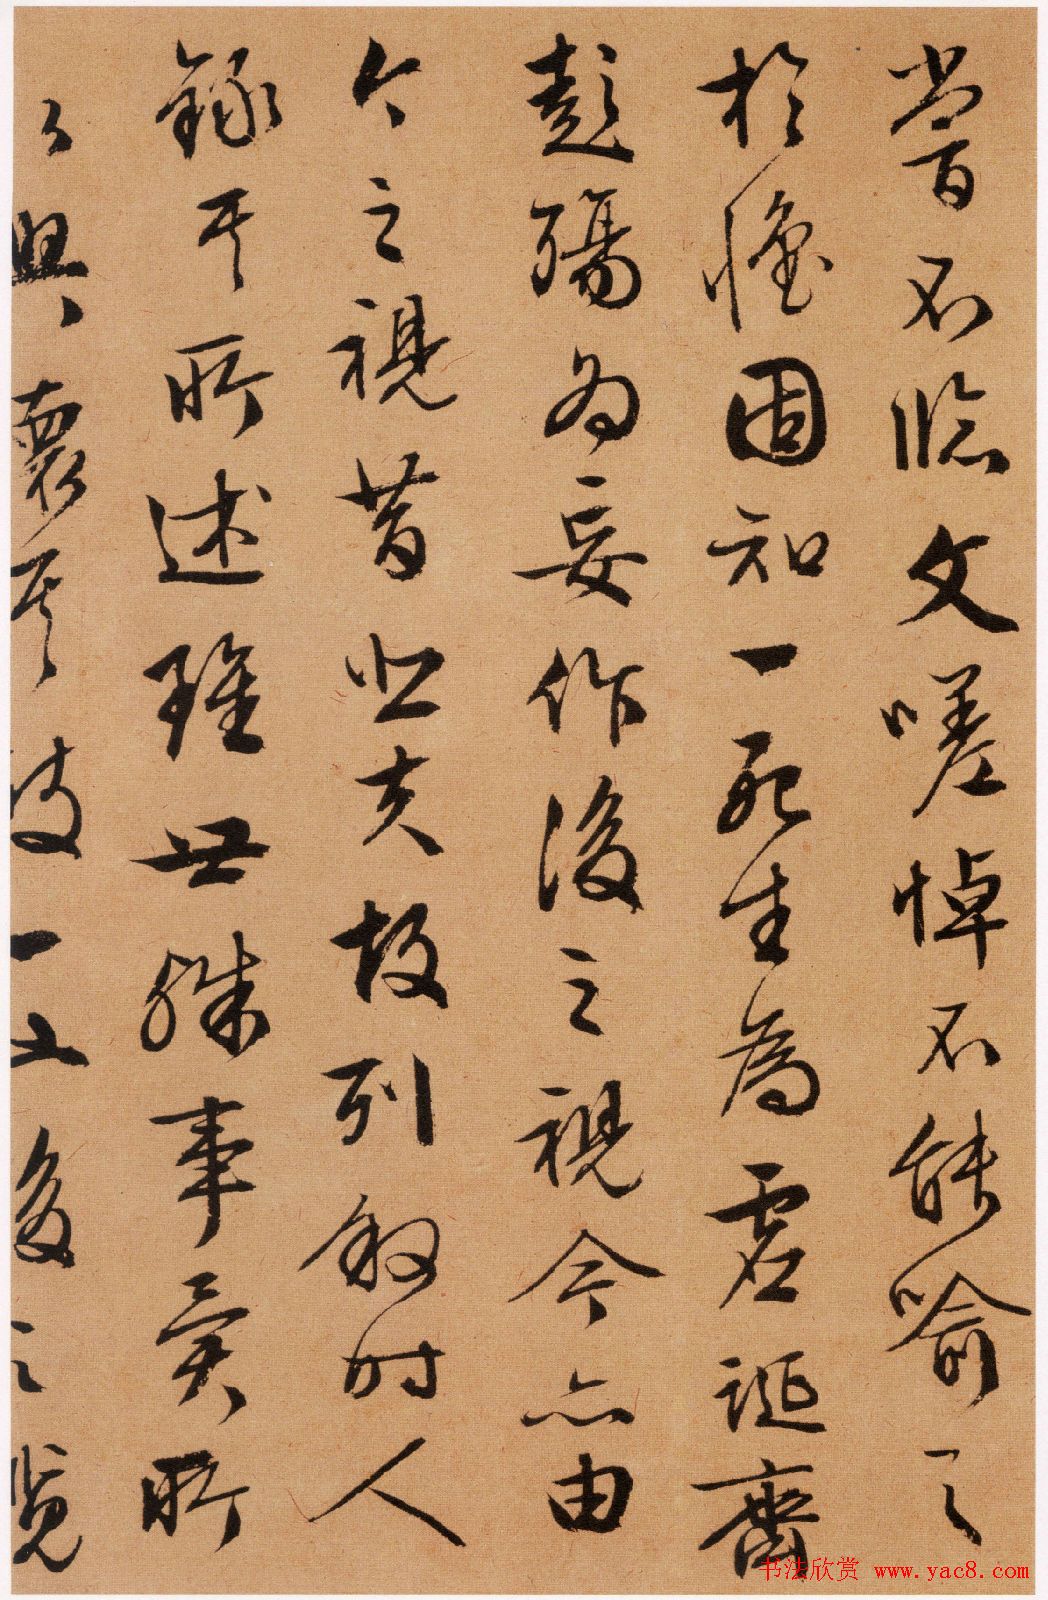 嘗不臨文嗟悼不能喻之
於懷固知一死生為虛誕齊
彭殤為妄作後之視今亦由
今之視昔悲夫故列敘時人
錄其所述雖世殊事異所
以興懷其致一也後之覽
书法欣赏 www.yac8.com